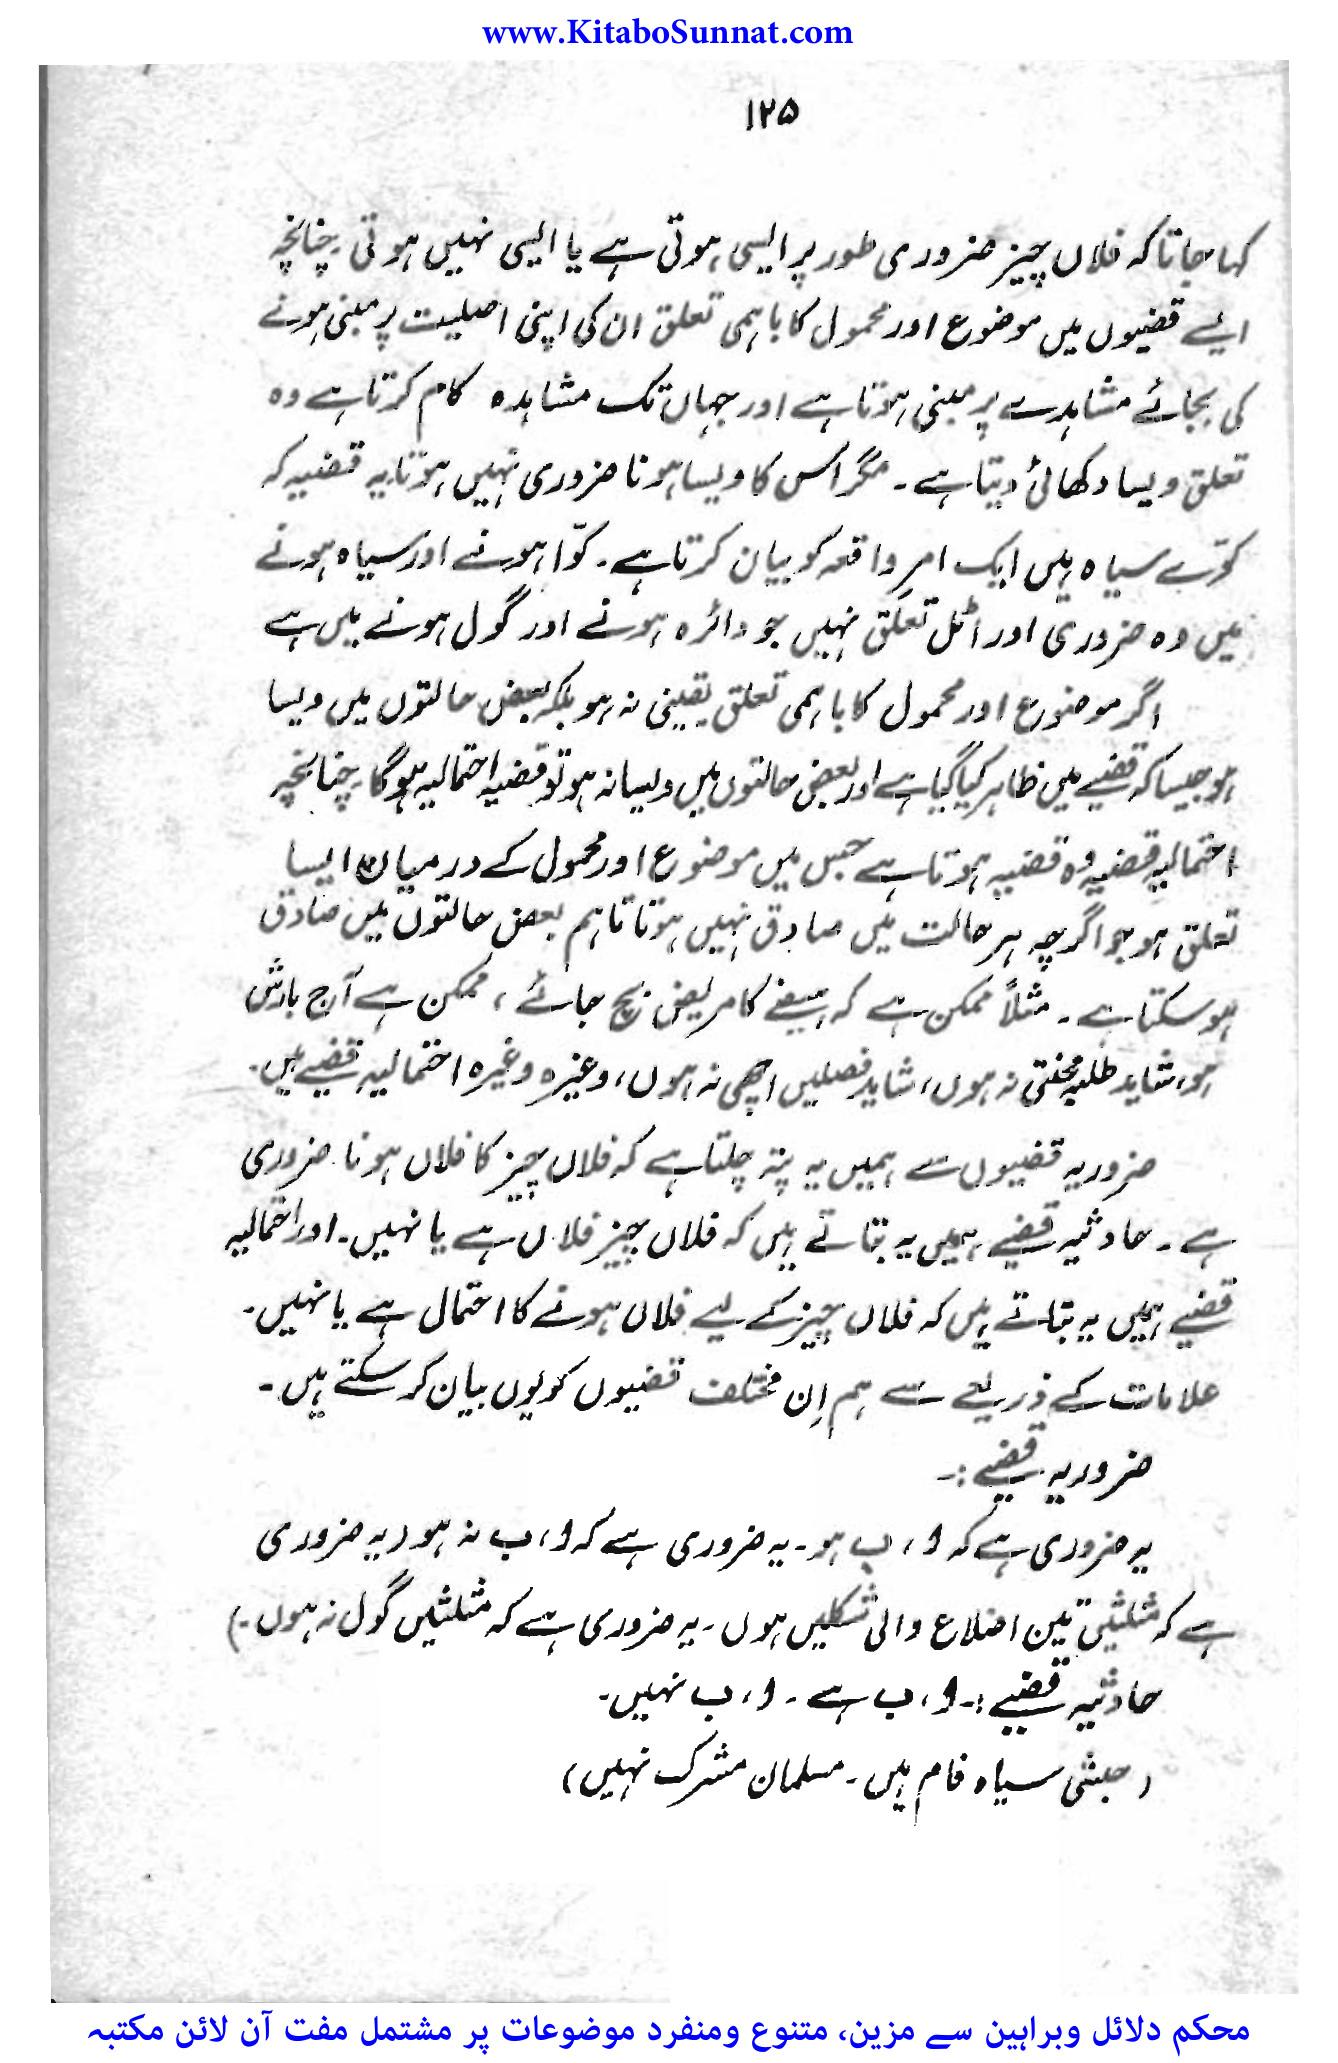 www.KitaboSunnat.com
۱۲۵
کہا جاتا کہ فلاں چیز ضروری طور پر ایسی ہوتی ہے یا ایسی نہیں ہوتی ۔ چنانچہ
ایسے قضیوں میں موضوع اور محمول کا باہمی تعلق ان کی اپنی اصلیت پر مبنی ہونے
کی بجائے مشاہدے پر مبنی ہوتا ہے اور جہاں تک مشاہدہ کام کرتا ہے وہ
تعلق ویسا دکھائی دیتا ہے ۔ مگر اس کا ویسا ہونا ضروری نہیں ہوتا یہ قضیہ کہ
کوّے سیاہ ہیں ایک امرِ واقعہ کو بیان کرتا ہے ۔ کوّا ہونے اور سیاہ ہونے
میں وہ ضروری اور اٹل تعلق نہیں جو دائرہ ہونے اور گول ہونے میں ہے
اگر موضوع اور محمول کا باہمی تعلق یقینی نہ ہو بلکہ بعض حالتوں میں ویسا
ہو جیسا کہ قضیے میں ظاہر کیا گیا ہے اور بعض حالتوں میں ویسا نہ ہو تو قضیہ احتمالیہ ہوگا ۔ چنانچہ
احتمالیہ قضیہ وہ قضیہ ہوتا ہے جس میں موضوع اور محمول کے درمیان ایسا
تعلق ہو جو اگرچہ ہر حالت میں صادق نہیں ہوتا تاہم بعض حالتوں میں صادق
ہو سکتا ہے ۔ مثلاً ممکن ہے کہ ہیضے کا مریض بچ جائے ، ممکن ہے آج بارش
ہو، شاید طلبہ محنتی نہ ہوں، شاید فصلیں اچھی نہ ہوں، وغیرہ وغیرہ احتمالیہ قضیے ہیں۔
ضروریہ قضیوں سے ہمیں یہ پتہ چلتا ہے کہ فلاں چیز کا فلاں ہونا ضروری
ہے ۔ حادثیہ قضیے ہمیں یہ بتاتے ہیں کہ فلاں چیز فلاں ہے یا نہیں ۔ اور احتمالیہ
قضیے ہمیں یہ بتاتے ہیں کہ فلاں چیز کے لیے فلاں ہونے کا احتمال ہے یا نہیں ۔
علامات کے ذریعے سے ہم اِن مختلف قضیوں کو یوں بیان کر سکتے ہیں ۔
ضروریہ قضیے :۔
یہ ضروری ہے کہ ا، ب ہو ۔ یہ ضروری ہے کہ ا، ب نہ ہو (یہ ضروری
ہے کہ مثلثیں تین اضلاع والی شکلیں ہوں ۔ یہ ضروری ہے کہ مثلثیں گول نہ ہوں ۔)
حادثیہ قضیے :۔ ا، ب ہے ۔ ا، ب نہیں ۔
(حبشی سیاہ فام ہیں ۔ مسلمان مشرک نہیں)
محکم دلائل وبراہین سے مزین، متنوع ومنفرد موضوعات پر مشتمل مفت آن لائن مکتبہ